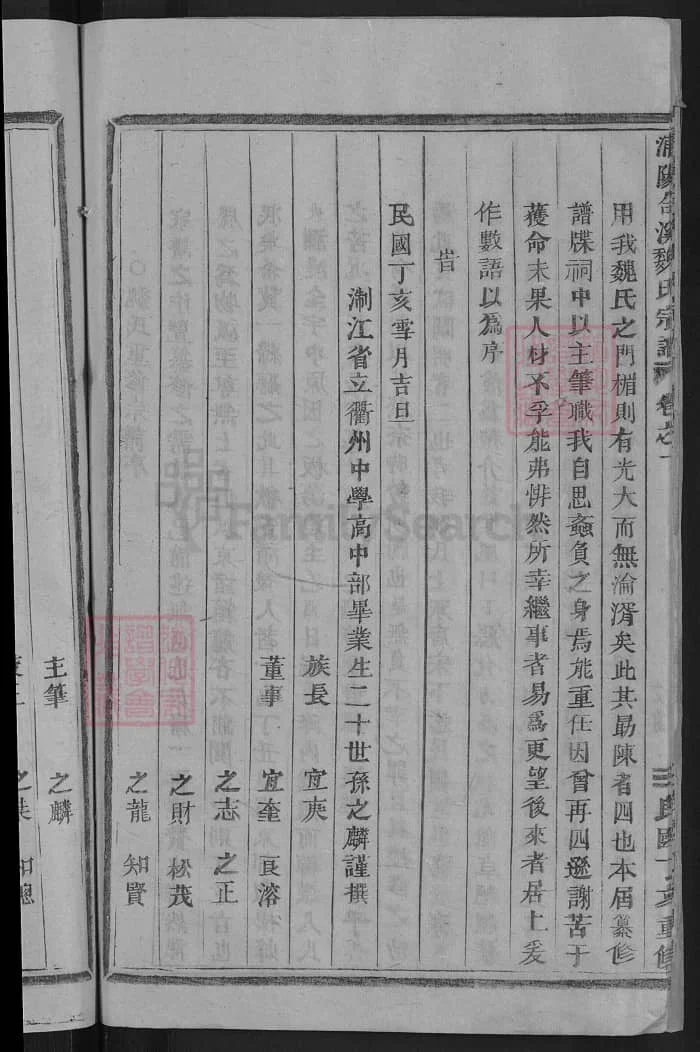 浦陽 溪魏氏宗譜 卷之一 民國丁亥重修
用我魏氏之門楣則有光大而無淪湑矣此其勗陳者四也本屆纂修
譜牒祠中以主筆職我自思螽負之身焉能重任因曾再四遜謝苦于
蒦命未果人材不孚能弗悱然所幸繼事者易爲更望後來者居上爰
作數語以爲序
旹
民國丁亥雪月吉旦
淛江省立衢州中學高中部畢業生二十世孫之麟謹撰
族長 宜庚
董事 宜奎 良溶
之志 之正
之財 松茂
之龍 知賢
主筆 之麟
FamilySearch